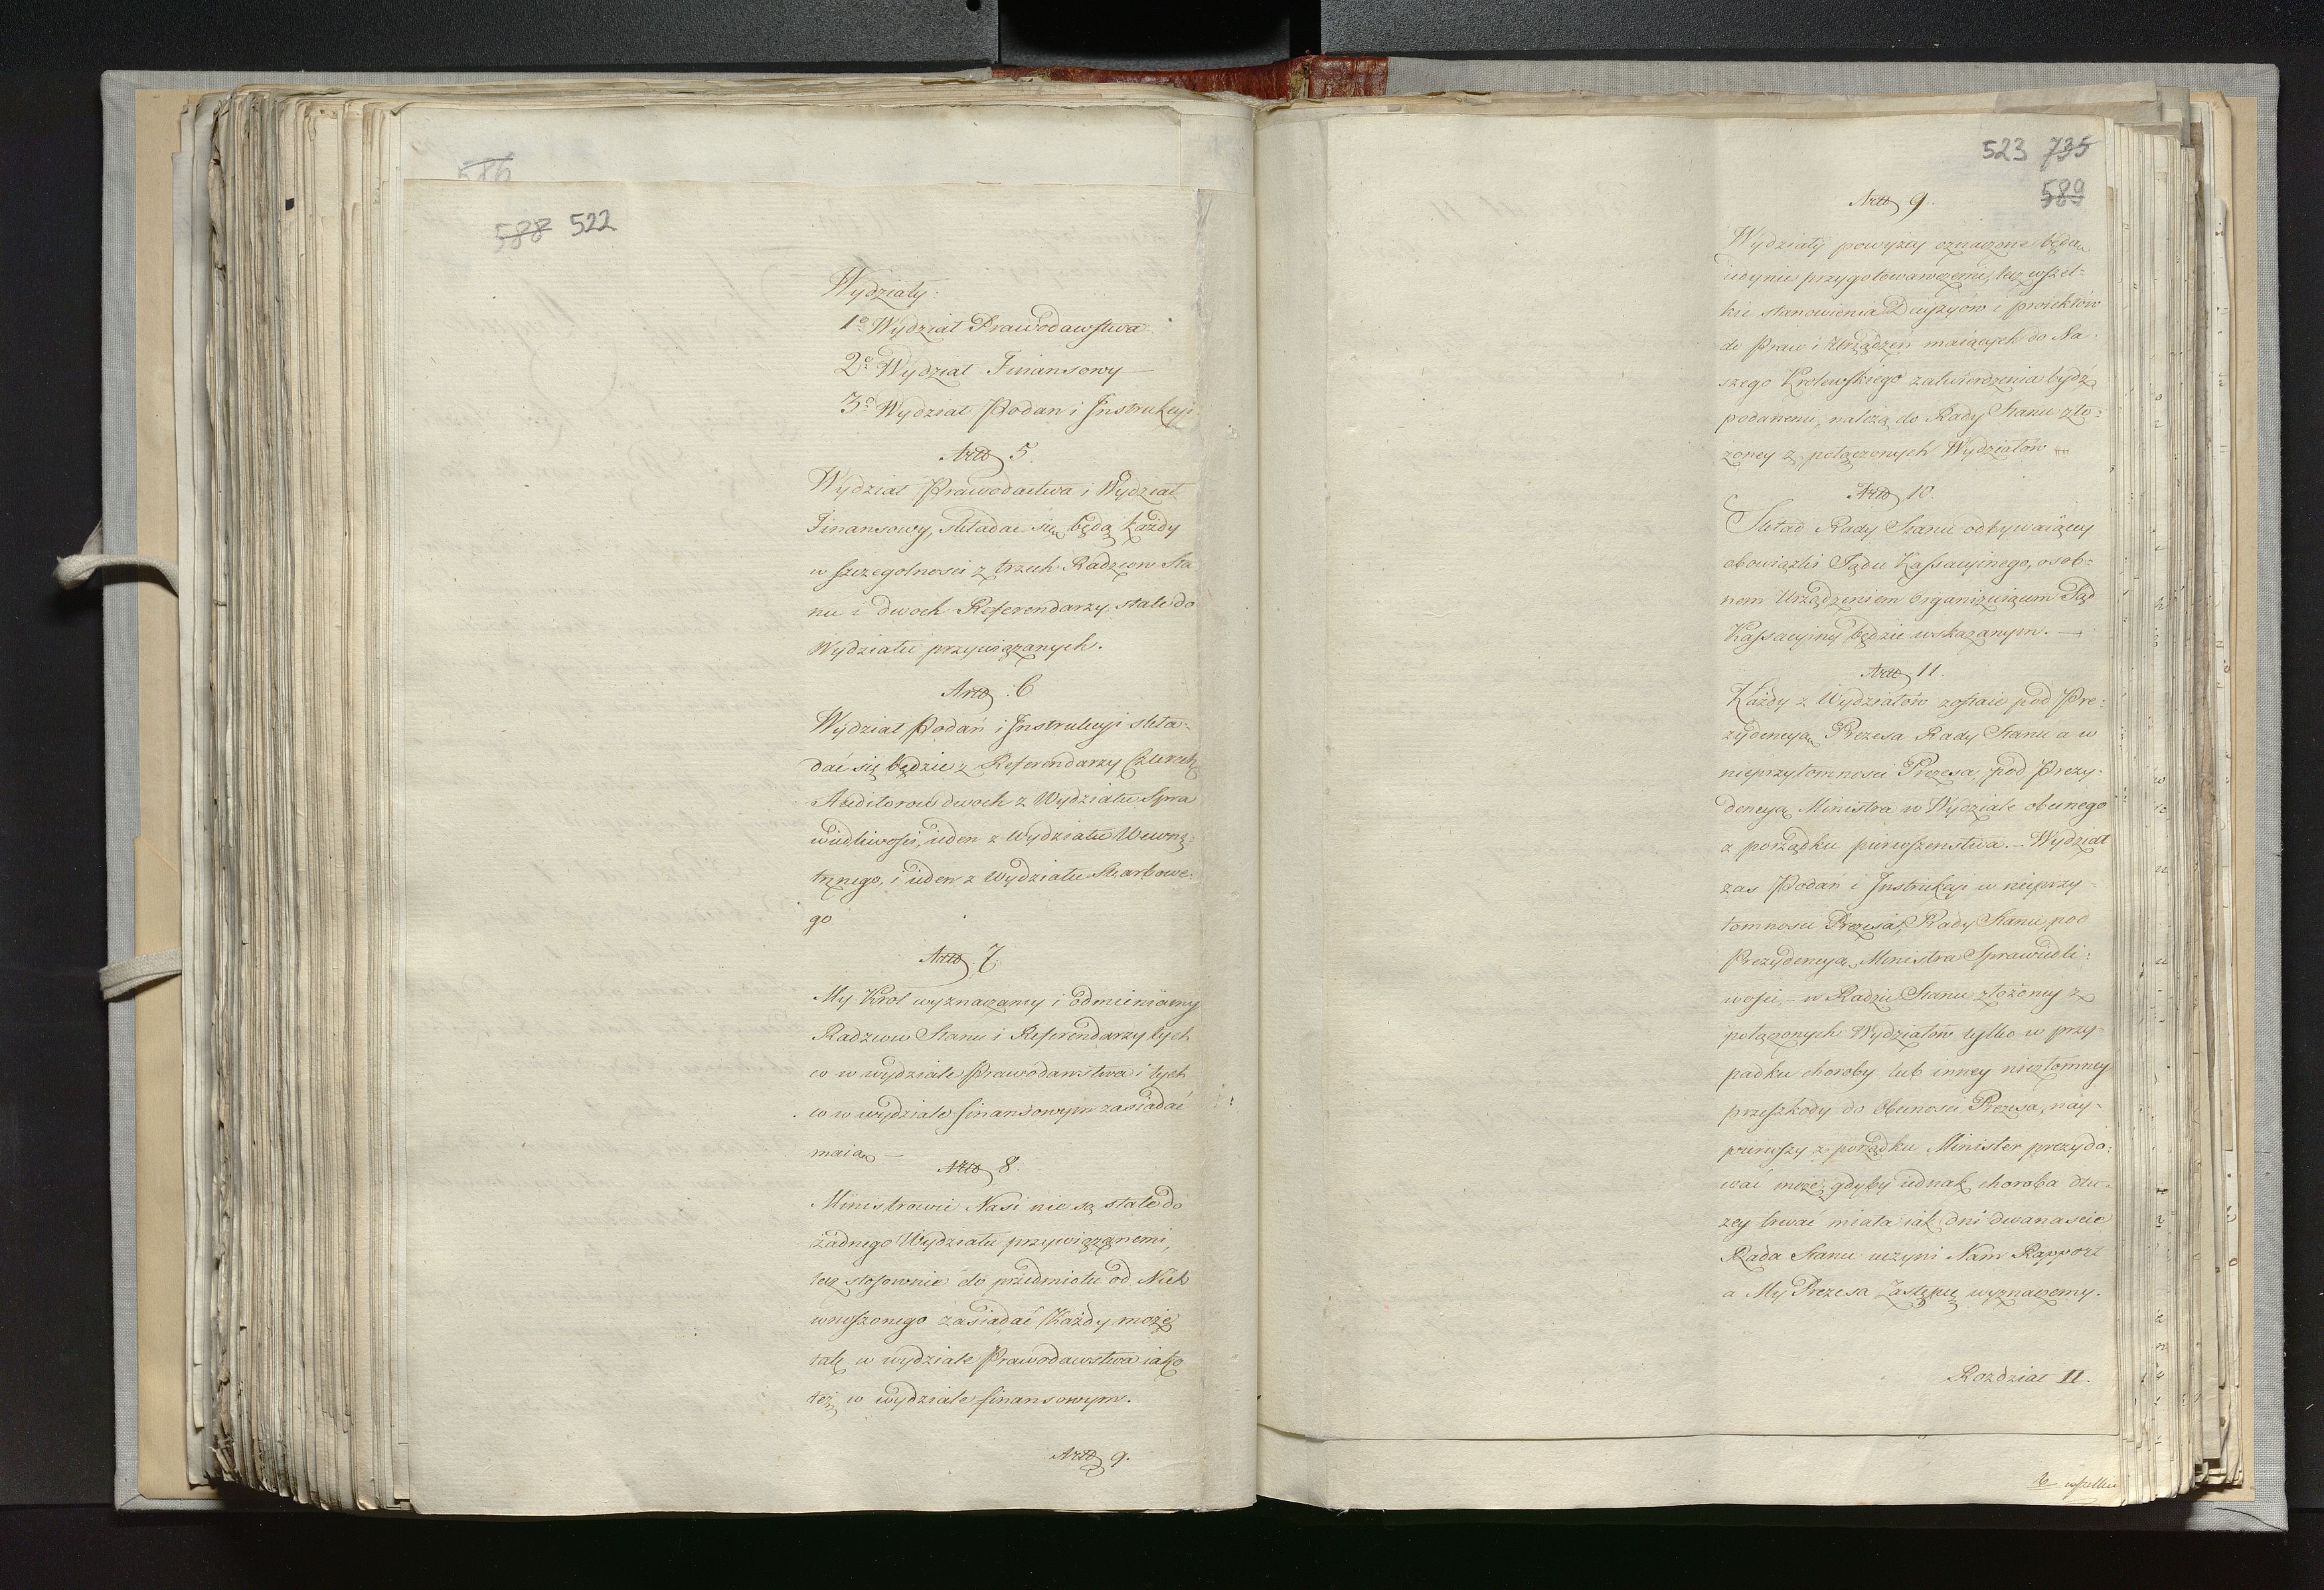 586
588 522
Wydziały:
1º Wydział Prawodawstwa.
2º Wydział Finansowy —
3º Wydział Podan i Instrukcyi
Artt 5.
Wydział Prawodastwa i Wydział
Finansowy, składać się będą każdy
w szczegolnosci z trzech Radzcow Sta
nu i dwoch Referendarzy stale do
Wydziału przywiązanych.
Artt 6
Wydział Podań i Instrukcyi skła-
dać się będzie z Referendarzy czterech
Auditorów dwoch z Wydziału Spra
wiedliwości, ieden z Wydziału Wewnę-
trznego, i ieden z Wydziału Skarbowe-
go
Artt 7.
My Krol wyznaczamy i odmieniamy
Radzcow Stanu i Referendarzy tych
co w wydziale Prawodawstwa i tych
co w wydziale finansowym zasiadać
maią —
Artt 8.
Ministrowie Nasi nie są stale do
żadnego Wydziału przywiązanemi,
lecz stosownie do przedmiotu od Nich
wnieszonego zasiadać Każdy może
tak w wydziale Prawodawstwa iako
też w wydziale finansowym.
Artt 9.
523 735
589
Artt 9.
Wydziały powyżey oznaczone będą
iedynie przygotowawczemi, lecz wszel-
kie stanowienia Decyzyów i proiektów
do Praw i Urządzeń maiących do Na-
szego Krolewskiego zatwierdzenia bydź
podanemi, należą do Rady Stanu zło-
żoney z połączonych Wydziałów
Artt 10.
Skład Rady Stanu odbywaiącey
obowiązki Sądu Kassacyinego, osob-
nem Urządzeniem organizuiącem Sąd
Kassacyiny będzie wskazanym. —
Artt 11.
Każdy z Wydziałów zostaie pod Pre-
zydencyą Prezesa Rady Stanu a w
nieprzytomnosci Prezesa, pod Prezy-
dencyą Ministra w Wydziale obecnego
z porządku pierwszenstwa. — Wydział
zas Podań i Instrukcyi w nieprzy-
tomnosci Prezesa, Rady Stanu, pod
Prezydencyą Ministra Sprawiedli-
wości, — w Radzie Stanu złożoney z
połączonych Wydziałów tylko w przy-
padku choroby lub inney niezłomney
przeszkody do obecnosci Prezesa, nay-
pierwszy z porządku Minister prezydo-
wać może, gdyby iednak choroba dłu-
żey trwać miała iak dni dwanascie
Rada Stanu uczyni Nam Rapport
a My Prezesa Zastępcę wyznaczemy.
Rozdział II.